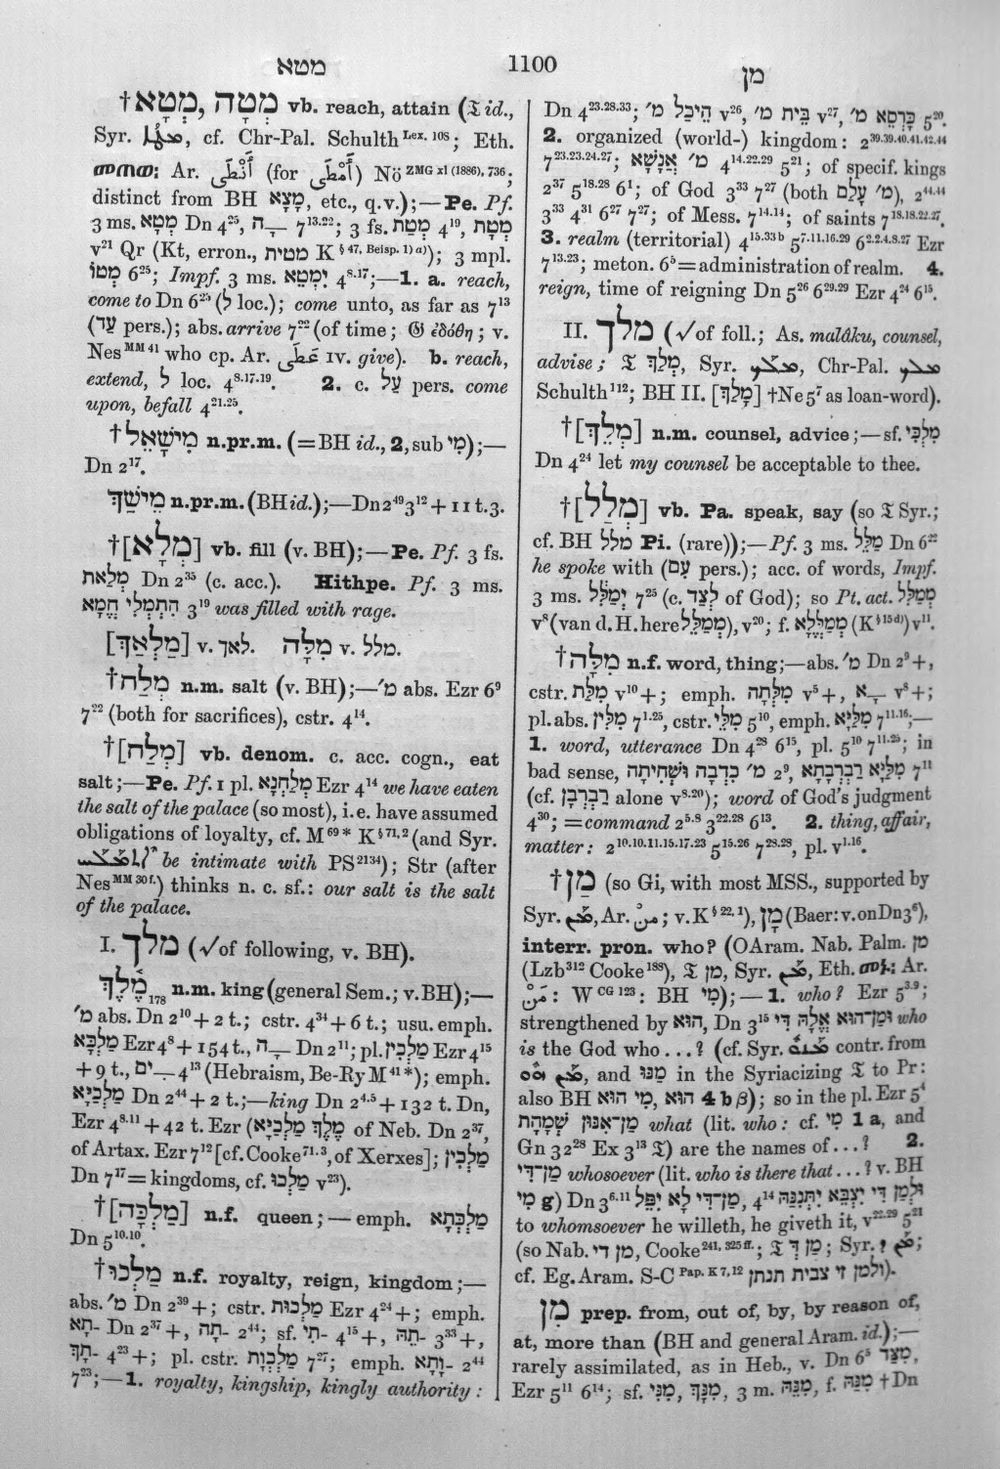 מטא
1100
מן
†מְטָא, מְטָה vb. reach, attain (𝔗 id.,
Syr. cf. Chr-Pal. Schulth Lex. 108; Eth.
Ar. (for ) Nö ZMG xl (1886), 736;
distinct from BH מָצָא, etc., q.v.);—Pe. Pf.
3 ms. מְטָא Dn 4²⁵, ה ָ— 7¹³·²²; 3 fs. מְטָת 4¹⁹,
v²¹ Qr (Kt, erron., מטית K § 47, Beisp. 1) a)); 3 mpl.
מְטוֹ 6²⁵; Impf. 3 ms. יִמְטֵא 4⁸·¹⁷;—1. a. reach,
come to Dn 6²⁵ (לְ loc.); come unto, as far as 7¹³
(עַד pers.); abs. arrive 7²² (of time; 𝔊 ἐδόθη; v.
Nes MM 41 who cp. Ar. IV. give). b. reach,
extend, לְ loc. 4⁸·¹⁷·¹⁹. 2. c. עַל pers. come
upon, befall 4²¹·²⁵.
†מִישָׁאֵל n.pr.m. (=BH id., 2, sub מִי);—
Dn 2¹⁷.
מֵישַׁךְ n.pr.m. (BH id.);—Dn 2⁴⁹ 3¹² + 11 t. 3.
†[מְלָא] vb. fill (v. BH);—Pe. Pf. 3 fs.
מְלָאת Dn 2³⁵ (c. acc.). Hithpe. Pf. 3 ms.
הִתְמְלִי חֱמָא 3¹⁹ was filled with rage.
[מַלְאַךְ] v. לאך. מִלָּה v. מלל.
†מְלַח n.m. salt (v. BH);—מ׳ abs. Ezr 6⁹
7²² (both for sacrifices), cstr. 4¹⁴.
†[מְלַח] vb. denom. c. acc. cogn., eat
salt;—Pe. Pf. 1 pl. מְלַחְנָא Ezr 4¹⁴ we have eaten
the salt of the palace (so most), i.e. have assumed
obligations of loyalty, cf. M 69* K § 71, 2 (and Syr.
be intimate with PS 2134); Str (after
Nes MM 30 f.) thinks n. c. sf.: our salt is the salt
of the palace.
I. מלך (√of following, v. BH).
מֶ֫לֶךְ 178 n.m. king (general Sem.; v. BH);—
מ׳ abs. Dn 2¹⁰ + 2 t.; cstr. 4³⁴ + 6 t.; usu. emph.
מַלְכָּא Ezr 4⁸ + 154 t., ה ָ— Dn 2¹¹; pl. מַלְכִין Ezr 4¹⁵
+ 9 t., ־ִים 4¹³ (Hebraism, Be-Ry M 41*); emph.
מַלְכַיָּא Dn 2⁴⁴ + 2 t.;—king Dn 2⁴·⁵ + 132 t. Dn,
Ezr 4⁸·¹¹ + 42 t. Ezr (מֶלֶךְ מַלְכַיָּא of Neb. Dn 2³⁷,
of Artax. Ezr 7¹² [cf. Cooke 71. 3, of Xerxes]; מַלְכִין
Dn 7¹⁷ = kingdoms, cf. מַלְכוּ v²³).
†[מַלְכָּה] n.f. queen;—emph. מַלְכְּתָא
Dn 5¹⁰·¹⁰.
†מַלְכוּ n.f. royalty, reign, kingdom;—
abs. מ׳ Dn 2³⁹+; cstr. מַלְכוּת Ezr 4²⁴+; emph.
־תָא Dn 2³⁷+, ־תָה 2⁴⁴; sf. ־תִי 4¹⁵+, ־תֵהּ 3³³+,
־תָךְ 4²³+; pl. cstr. מַלְכְוָת 7²⁷; emph. ־וָתָא 2⁴⁴
7²³;—1. royalty, kingship, kingly authority:
Dn 4²³·²⁸·³³; הֵיכַל מ׳ v²⁶, בֵּית מ׳ v²⁷, כָּרְסֵא מ׳ 5²⁰.
2. organized (world-) kingdom: 2³⁹·³⁹·⁴⁰·⁴¹·⁴²·⁴⁴
7²³·²³·²⁴·²⁷; מ׳ אֲנָשָׁא 4¹⁴·²²·²⁹ 5²¹; of specif. kings
2³⁷ 5¹⁸·²⁸ 6¹; of God 3³³ 7²⁷ (both מ׳ עָלַם), 2⁴⁴·⁴⁴
3³³ 4³¹ 6²⁷ 7²⁷; of Mess. 7¹⁴·¹⁴; of saints 7¹⁸·¹⁸·²²·²⁷.
3. realm (territorial) 4¹⁵·³³ᵇ 5⁷·¹¹·¹⁶·²⁹ 6²·²·⁴·⁸·²⁷ Ezr
7¹³·²³; meton. 6⁵ = administration of realm. 4.
reign, time of reigning Dn 5²⁶ 6²⁹·²⁹ Ezr 4²⁴ 6¹⁵.
II. מלך (√of foll.; As. malâku, counsel,
advise; 𝔗 מְלַךְ, Syr. Chr-Pal.
Schulth 112; BH II. [מָלַךְ] †Ne 5⁷ as loan-word).
†[מְלַךְ] n.m. counsel, advice;—sf. מִלְכִּי
Dn 4²⁴ let my counsel be acceptable to thee.
†[מְלַל] vb. Pa. speak, say (so 𝔗 Syr.;
cf. BH מלל Pi. (rare));—Pf. 3 ms. מַלִּל Dn 6²²
he spoke with (עִם pers.); acc. of words, Impf.
3 ms. יְמַלִּל 7²⁵ (c. לְצַד of God); so Pt. act. מְמַלִּל
v⁸ (van d. H. here מְמַלֵּל), v²⁰; f. מְמַלֱּלָא (K § 15 d)) v¹¹.
†מִלָּה n.f. word, thing;—abs. מ׳ Dn 2⁹+,
cstr. מִלַּת v¹⁰+; emph. מִלְּתָה v⁵+, א ָ— v⁸+;
pl. abs. מִלִּין 7¹·²⁵, cstr. מִלֵּי 5¹⁰, emph. מִלַּיָּא 7¹¹·¹⁶;—
1. word, utterance Dn 4²⁸ 6¹⁵, pl. 5¹⁰ 7¹¹·²⁵; in
bad sense, מ׳ כִדְבָה וּשְׁחִיתָה 2⁹, מִלַּיָּא רַבְרְבָתָא 7¹¹
(cf. רַבְרְבָן alone v⁸·²⁰); word of God's judgment
4³⁰; =command 2⁵·⁸ 3²²·²⁸ 6¹³. 2. thing, affair,
matter: 2¹⁰·¹⁰·¹¹·¹⁵·¹⁷·²³ 5¹⁵·²⁶ 7²⁸·²⁸, pl. v¹·¹⁶.
†מַן (so Gi, with most MSS., supported by
Syr. Ar. ; v. K § 22, 1), מָן (Baer: v. on Dn 3⁶),
interr. pron. who? (OAram. Nab. Palm. מן
(Lzb 312 Cooke 188), 𝔗 מַן, Syr. Eth. Ar.
مَنْ: W CG 123: BH מִי);—1. who? Ezr 5³·⁹;
strengthened by הוּא, Dn 3¹⁵ וּמַן־הוּא אֱלָהּ דִּי who
is the God who...? (cf. Syr. contr. from
and מַנּוּ in the Syriacizing 𝔗 to Pr:
also BH מִי הוּא, הוּא 4 b β); so in the pl. Ezr 5⁴
מַן־אִנּוּן שְׁמָהָת what (lit. who: cf. מִי 1 a, and
Gn 32²⁸ Ex 3¹³ 𝔗) are the names of...? 2.
מַן־דִּי whosoever (lit. who is there that...? v. BH
מִי g) Dn 3⁶·¹¹ מַן־דִּי לָא יִפֵּל, 4¹⁴ וּלְמַן דִּי יִצְבֵּא יִתְּנִנַּהּ
to whomsoever he willeth, he giveth it, v²²·²⁹ 5²¹
(so Nab. מן די, Cooke 241, 325 ff.; 𝔗 מַן דְּ; Syr.
cf. Eg. Aram. S-C Pap. K 7, 12 ולמן זי צבית תנתן).
מִן prep. from, out of, by, by reason of,
at, more than (BH and general Aram. id.);—
rarely assimilated, as in Heb., v. Dn 6⁵ מִצַּד,
Ezr 5¹¹ 6¹⁴; sf. מִנִּי, מִנָּךְ, 3 m. מִנֵּהּ, f. מִנַּהּ †Dn